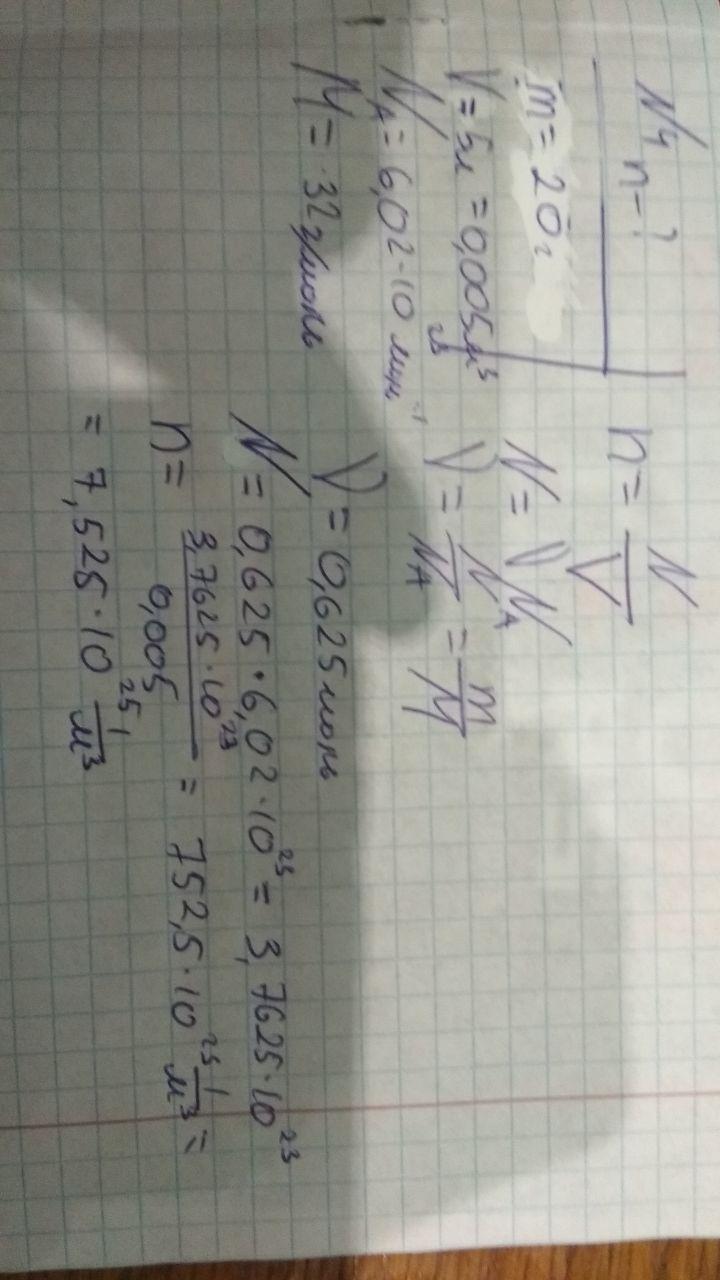 №4
n-?
m = 20 г
V = 5л = 0,005 м³
N_A = 6,02·10²³ моль⁻¹
M = 32 г/моль
n = N/V
N = νN_A
ν = N/N_A = m/M
ν = 0,625 моль
N = 0,625·6,02·10²³ = 3,7625·10²³
n = 3,7625·10²³/0,005 = 752,5·10²³ 1/м³ =
= 7,525·10²⁵ 1/м³